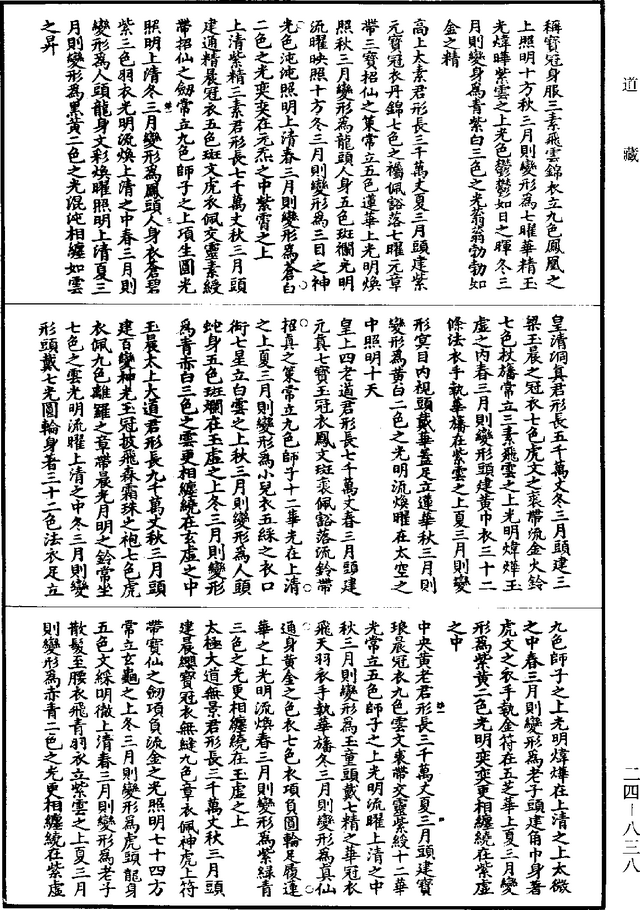 道藏
稱寶冠身服三素飛雲錦衣立九色鳳凰之
上照明十方秋三月則變形為七曜華精玉
光煒曄紫雲之上光色鬱鬱如日之暉冬三
月則變身為青紫白三色之光蓊蓊勃勃如
金之精
高上太素君形長三千萬丈夏三月頭建紫
元寶冠衣丹錦七色之襠佩豁落七曜元章
帶三寶招仙之策常立五色蓮華上光明煥
照秋三月變形為龍頭人身五色斑爛光明
流曜映照十方冬三月則變形為三日之神
光色沌沌照明上清春三月則變形為蒼白
二色之光奕奕在元炁之中紫霄之上
上清紫精三素君形長七千萬丈秋三月頭
建通精晨冠衣五色斑文虎衣佩交靈素綬
帶招仙之劒常立九色師子之上項生圓光
照明上清冬三月變形為鳳頭人身衣蒼碧
紫三色羽衣光明流煥上清之中春三月則
變形為人頭龍身文彩煥曜照明上清夏三
月則變形為黑黃二色之光混沌相纏如雲
之昇
皇清洞真君形長五千萬丈冬三月頭建三
梁玉晨之冠衣七色虎文之裘帶流金火鈴
七色杖旛常立三素飛雲之上光明煒燁玉
虛之內春三月則變形頭建黃巾衣三十二
條法衣手執華旛在紫雲之上夏三月則變
形冥目內視頭戴華蓋足立蓮華秋三月則
變形為黃白二色之光明流煥曜在太空之
中照明十天
皇上四老道君形長七千萬丈春三月頭建
元真七寶玉冠衣鳳文斑裘佩豁落流鈴帶
招真之策常立九色師子十二華光在上清
之上夏三月則變形為小兒衣五綵之衣口
銜七星立白雲之上秋三月則變形為人頭
蛇身五色斑斕在玉虛之上冬三月則變形
為青赤白三色之雲更相纏繞在玄虛之中
玉晨太上大道君形長九千萬丈秋三月頭
建百變神光玉冠披飛森霜珠之袍七色虎
衣佩九色離羅之章帶晨光月明之鈴常坐
七色之雲光明流曜上清之中冬三月則變
形頭戴七光圓輪身著三十二色法衣足立
九色師子之上光明煒燁在上清之上太微
之中春三月則變形為老子頭建角巾身著
虎文之衣手執金符在五芝華上夏三月變
形為紫黃二色光明奕奕更相纏繞在紫虛
之中
中央黃老君形長三千萬丈夏三月頭建寶
琅晨冠衣九色雲文裘帶交靈紫綬十二華
光常立五色師子之上光明流曜上清之中
秋三月則變形為玉童頭戴七精之華冠衣
飛天羽衣手執華旛冬三月則變形為真仙
通身黃金之色衣七色衣項負圓輪足履蓮
華之上光明流煥春三月則變形為紫緑青
三色之光更相纏繞在玉虛之上
太極大道無景君形長三千萬丈秋三月頭
建晨纓寶冠衣無縫九色章衣佩神虎上符
帶寶仙之劒項負流金之光照明七十四方
常立玄龜之上冬三月則變形為虎頭龍身
五色文綵明徹上清春三月則變形為老子
散髮至腰衣飛青羽衣立紫雲之上夏三月
則變形為赤青二色之光更相纏繞在紫虛
二四—八三八